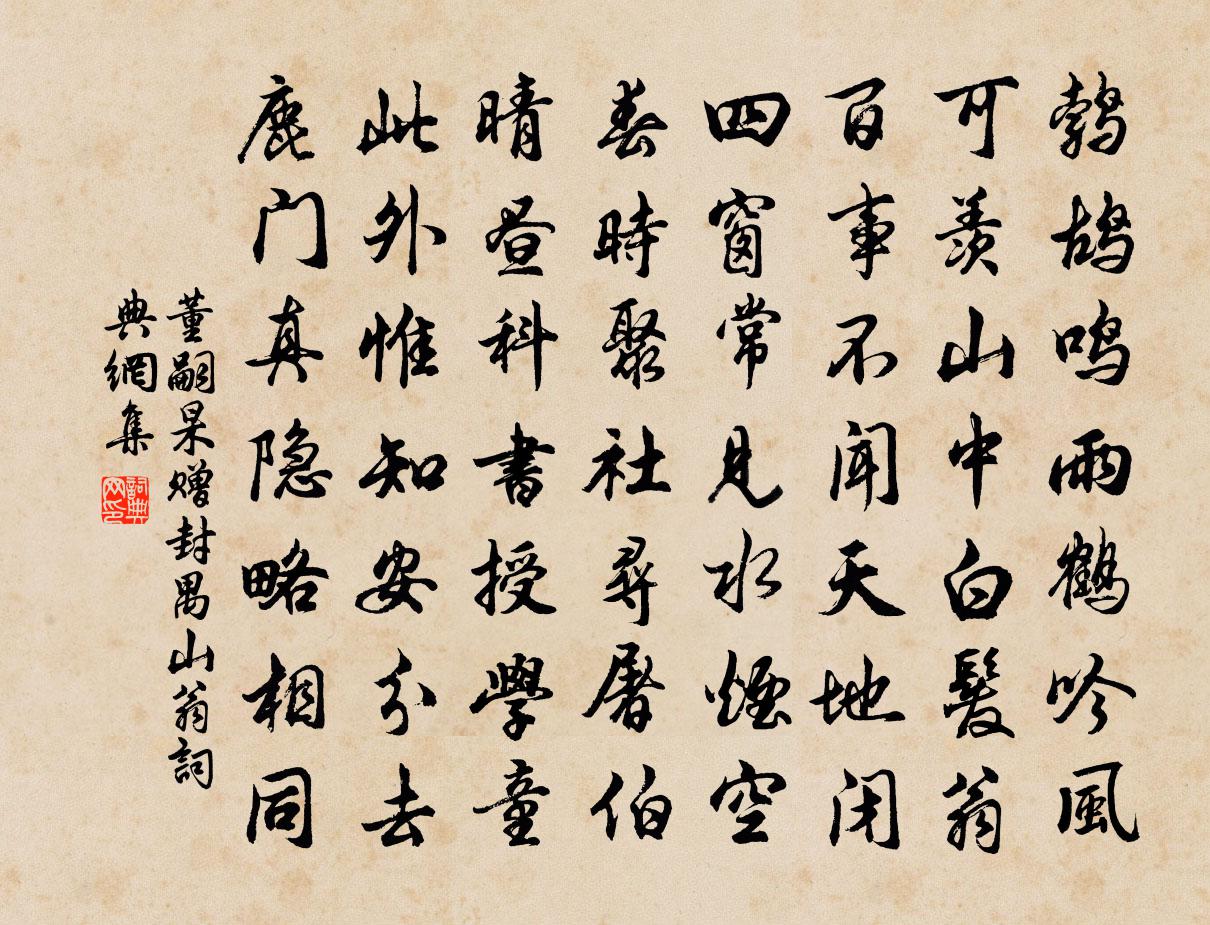 鹁鸪鸣雨鹤吟風
可羨山中白髮翁
百事不闻天地闭
四窗常見水煙空
春時聚社尋屠伯
晴昼科書授學童
此外惟知安分去
鹿门真隐略相同
董嗣杲赠封禺山翁詞
典網集
詞典网印